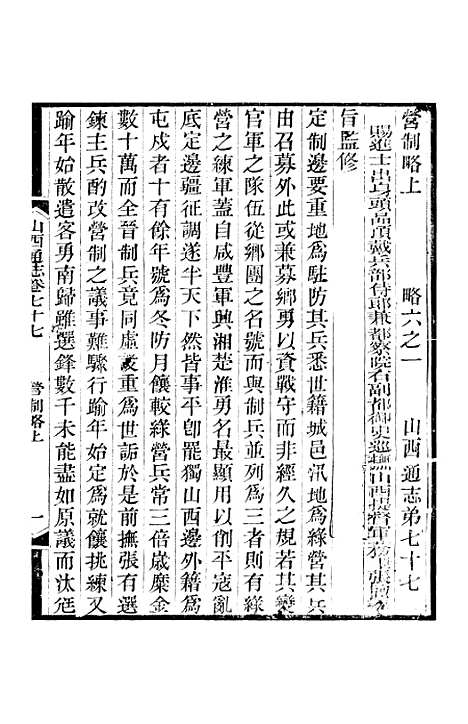 營制略上　略六之一　山西通志弟七十七
賜進士出身頭品頂戴兵部侍郎兼都察院右副都御史巡撫山西提督軍務張煦奉
旨監修
定制邊要重地為駐防其兵悉世籍城邑汛地為綠營其兵
由召募外此或兼募鄉勇以資戰守而非經久之規若其變
官軍之隊伍從鄉團之名號而與制兵並列為三者則有綠
營之練軍蓋自咸豐軍興湘楚淮勇名最顯用以創平寇亂
底定邊疆征調遂半天下然皆事平卽罷獨山西邊外籍為
屯戍者十有餘年號為冬防月饟較綠營兵常三倍歲縻金
數十萬而全晉制兵竟同虛設重為世詬於是前撫張有選
鍊主兵酌改營制之議事難驟行踰年始定為就饟挑練又
踰年始散遣客勇南歸雖選鋒數千未能盡如原議而汰尪
山西通志卷七十七　營制略上　一